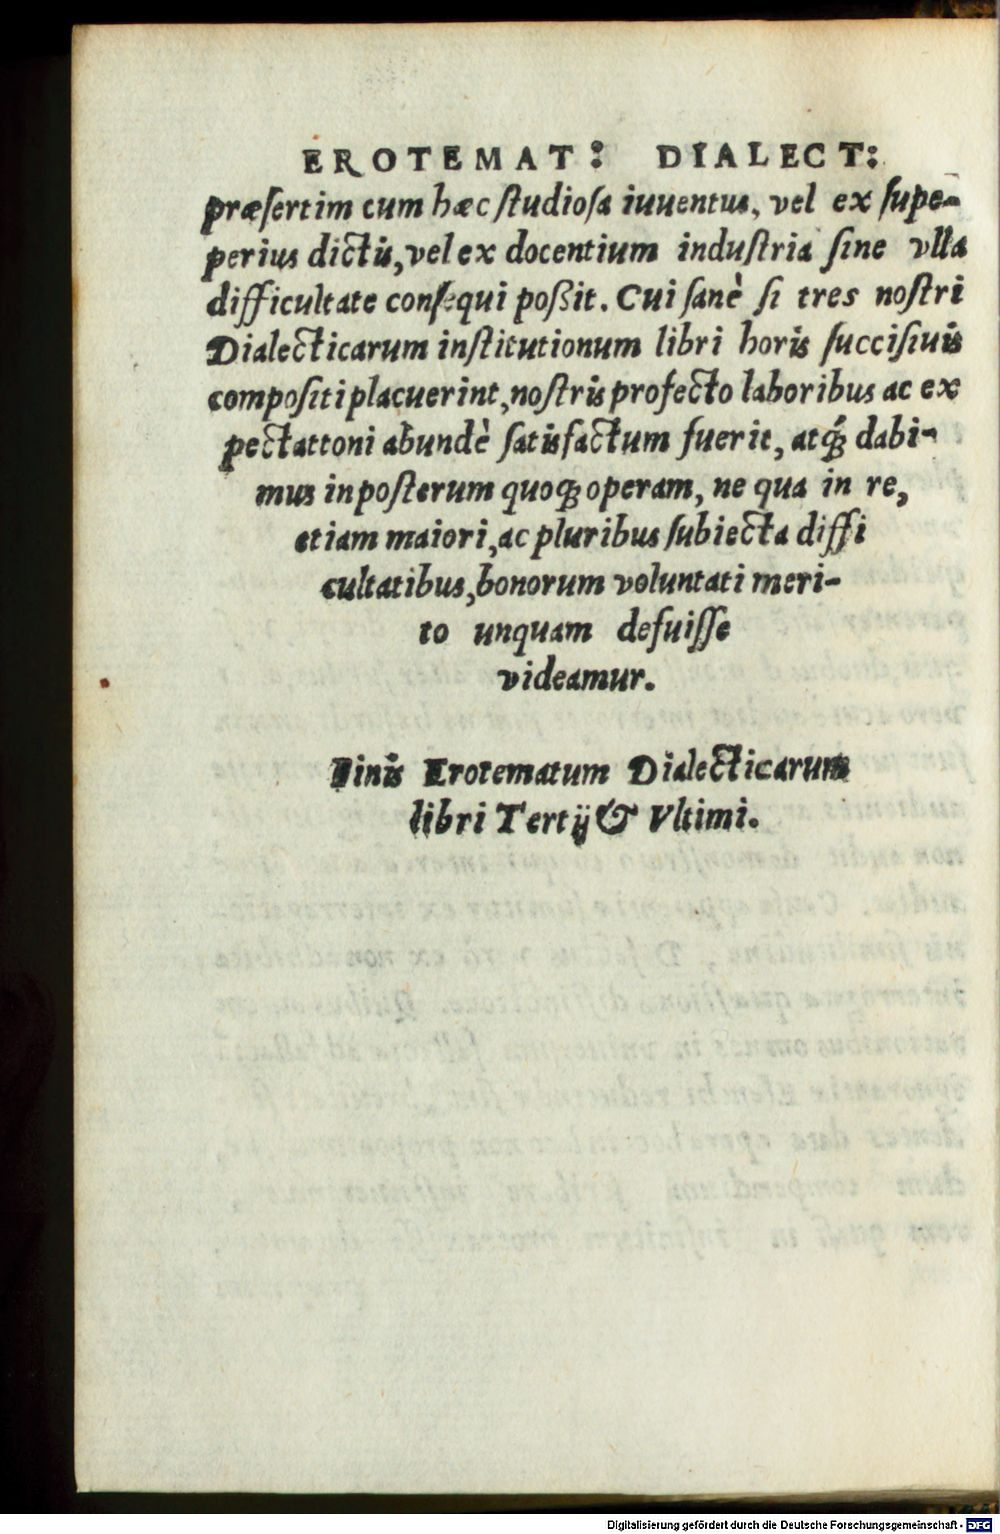 EROTEMAT: DIALECT:
præſertim cum hæc ſtudioſa iuuentus, vel ex ſupe-
perius dictis, vel ex docentium induſtria ſine vlla
difficultate conſequi poßit. Cui ſanè ſi tres noſtri
Dialecticarum inſtitutionum libri horis ſucciſiuis
compoſiti placuerint, noſtris profecto laboribus ac ex
pectattoni abundè ſatisfactum fuerit, atq́; dabi-
mus inpoſterum quoq; operam, ne qua in re,
etiam maiori, ac pluribus ſubiecta diffi
cultatibus, bonorum voluntati meri-
to unquam defuiſſe
videamur.
Finis Erotematum Dialecticarum
libri Tertij & Vltimi.
Digitalisierung gefördert durch die Deutsche Forschungsgemeinschaft - DFG